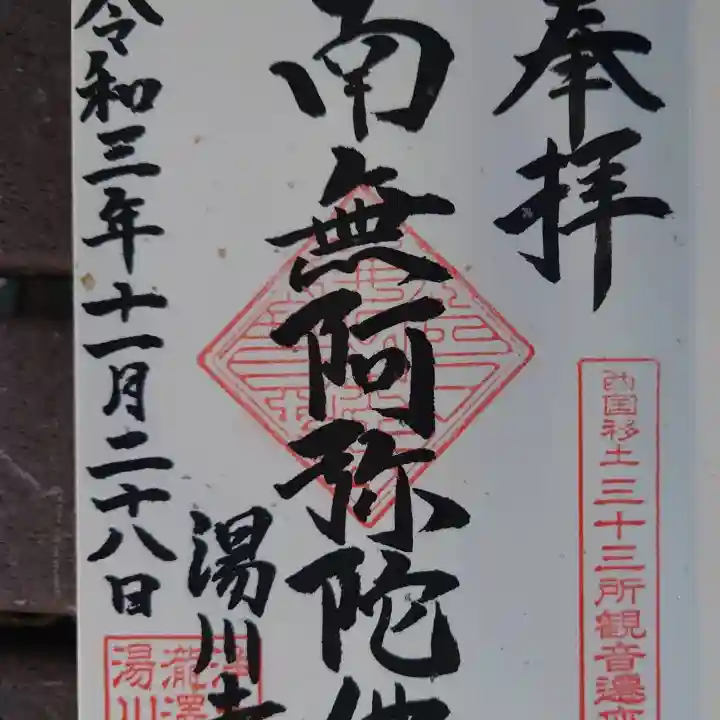 奉拝
西国移土三十三所観音
南無阿弥陀佛
湯川寺
令和三年十一月二十八日
瀧澤
湯川